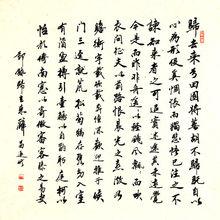 歸去來兮田園將蕪胡不歸既自以
心為形役奚惆悵而獨悲悟已往之不
諫知來者之可追實迷途其未遠覺
今是而昨非舟遙遙以輕颺風飄飄而吹
衣問征夫以前路恨晨光之熹微乃
瞻衡宇載欣載奔僮僕歡迎稚子候
門三徑就荒松菊猶存攜幼入室
有酒盈樽引壺觴以自酌眄庭柯以
怡顏倚南窗以寄傲審容膝之易安
節錄歸去來辭